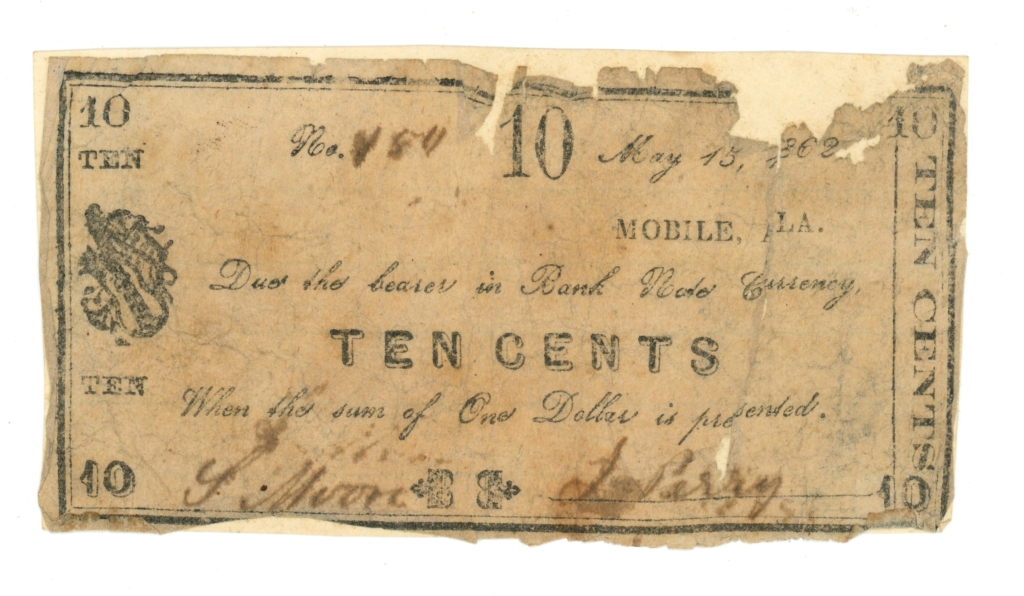 10 10 10
No. May 15, 1862
TEN
MOBILE, ALA.
Due the bearer in Bank Note Currency,
TEN CENTS
TEN
When the sum of One Dollar is presented.
10 S. Moon J Perry 10
TEN CENTS